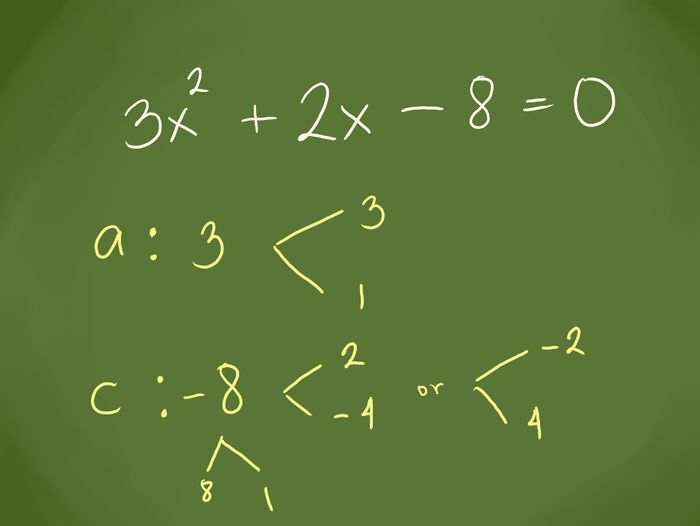 3x² + 2x − 8 = 0
a : 3 < 3
1
c : -8 < 2 or < -2
-4 4
8 1